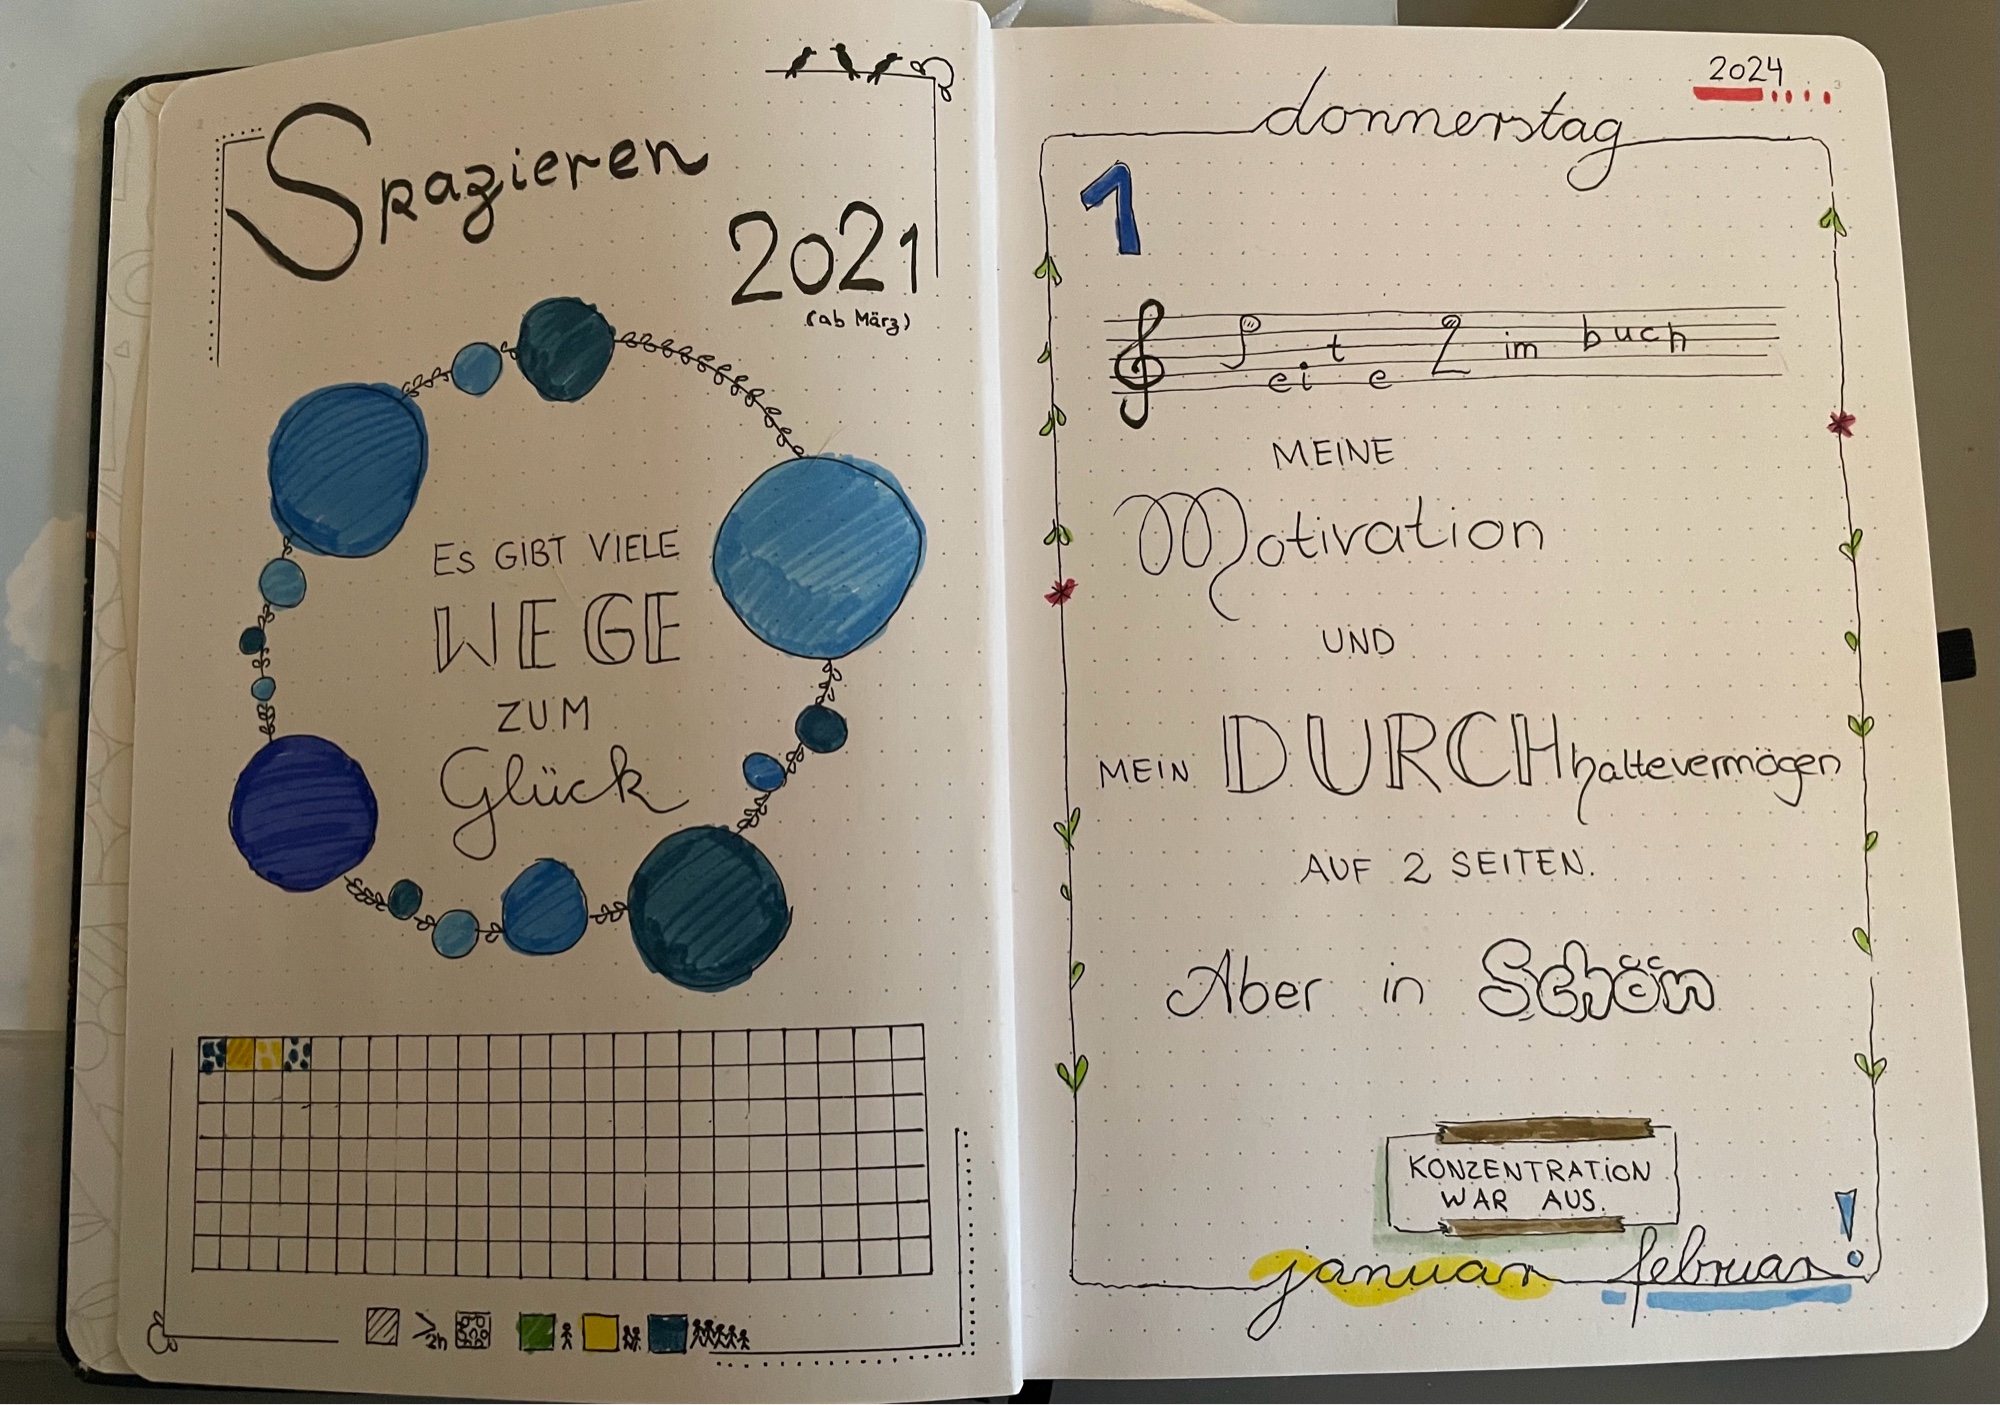 Spazieren
2021
(ab März)
ES GIBT VIELE
WEGE
ZUM
Glück
> 2h
2024
donnerstag
1
Seite 2 im buch
MEINE
Motivation
UND
MEIN DURCHhaltevermögen
AUF 2 SEITEN.
Aber in Schön
KONZENTRATION
WAR AUS.
januar februar!